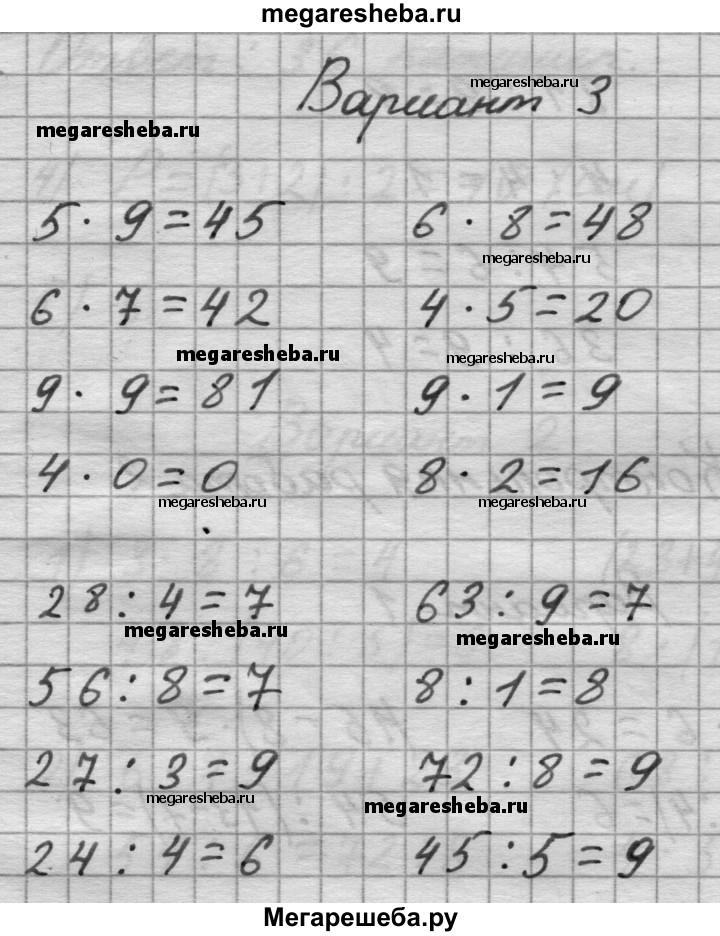 megaresheba.ru
Вариант 3
megaresheba.ru
megaresheba.ru
5 · 9 = 45 6 · 8 = 48
megaresheba.ru
6 · 7 = 42 4 · 5 = 20
megaresheba.ru megaresheba.ru
9 · 9 = 81 9 · 1 = 9
4 · 0 = 0 8 · 2 = 16
megaresheba.ru megaresheba.ru
28 : 4 = 7 63 : 9 = 7
megaresheba.ru megaresheba.ru
56 : 8 = 7 8 : 1 = 8
27 : 3 = 9 72 : 8 = 9
megaresheba.ru megaresheba.ru
24 : 4 = 6 45 : 5 = 9
Мегарешеба.ру